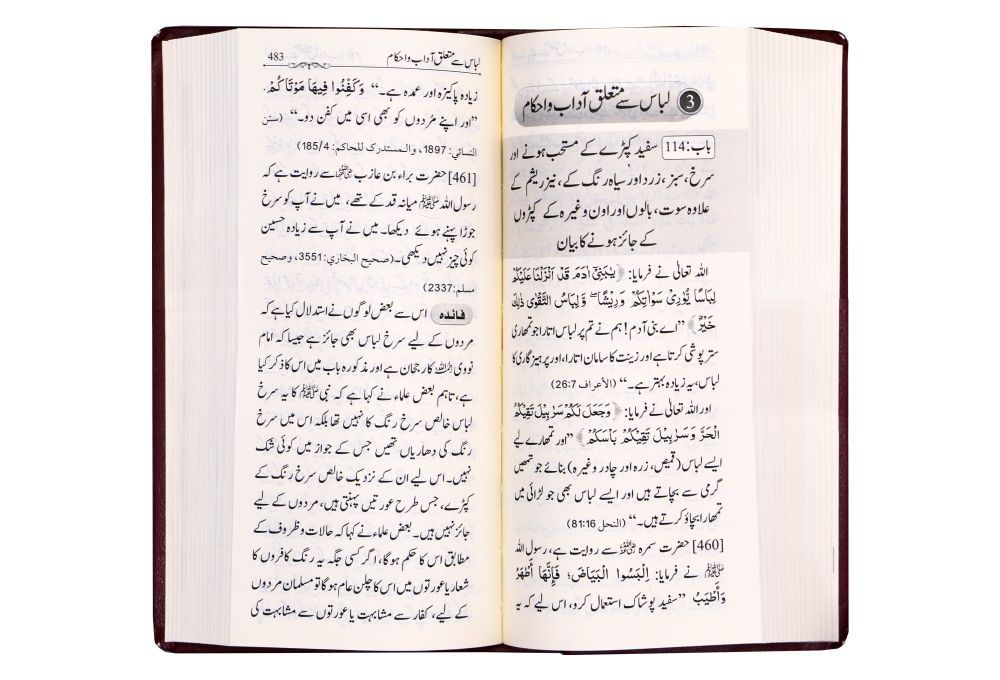 3 لباس سے متعلق آداب و احکام
باب:114 سفید کپڑے کے مستحب ہونے اور
سرخ، سبز، زرد اور سیاہ رنگ کے، نیز ریشم کے
علاوہ سوت، بالوں اور اون وغیرہ کے کپڑوں
کے جائز ہونے کا بیان
اللہ تعالیٰ نے فرمایا: ﴿يٰبَنِيْٓ اٰدَمَ قَدْ اَنْزَلْنَا عَلَيْكُمْ
لِبَاسًا يُّوَارِيْ سَوْاٰتِكُمْ وَرِيْشًا ۭ وَلِبَاسُ التَّقْوٰى ذٰلِكَ
خَيْرٌ﴾ ”اے بنی آدم! ہم نے تم پر لباس اتارا جو تمھاری
ستر پوشی کرتا ہے اور زینت کا سامان اتارا، اور پرہیزگاری کا
لباس، یہ زیادہ بہتر ہے۔“ (الأعراف 26:7)
اور اللہ تعالیٰ نے فرمایا: ﴿وَجَعَلَ لَكُمْ سَرَابِيْلَ تَقِيْكُمُ
الْحَرَّ وَسَرَابِيْلَ تَقِيْكُمْ بَاْسَكُمْ﴾ ”اور تمھارے لیے
ایسے لباس (قمیص، زرہ اور چادر وغیرہ) بنائے جو تمھیں
گرمی سے بچاتے ہیں اور ایسے لباس بھی جو لڑائی میں
تمھارا بچاؤ کرتے ہیں۔“ (النحل 81:16)
[460] حضرت سمرہ رضی اللہ عنہ سے روایت ہے، رسول اللہ
ﷺ نے فرمایا: اِلْبَسُوا الْبَيَاضَ؛ فَإِنَّهَا أَطْهَرُ
وَأَطْيَبُ ”سفید پوشاک استعمال کرو، اس لیے کہ یہ
لباس سے متعلق آداب و احکام 483
زیادہ پاکیزہ اور عمدہ ہے۔“ وَكَفِّنُوا فِيهَا مَوْتَاكُمْ.
”اور اپنے مُردوں کو بھی اسی میں کفن دو۔“ (سنن
النسائي: 1897، والمستدرک للحاکم: 185/4)
[461] حضرت براء بن عازب رضی اللہ عنہ سے روایت ہے کہ
رسول اللہ ﷺ میانہ قد کے تھے، میں نے آپ کو سرخ
جوڑا پہنے ہوئے دیکھا۔ میں نے آپ سے زیادہ حسین
کوئی چیز نہیں دیکھی۔ (صحیح البخاري: 3551، وصحیح
مسلم: 2337)
فائدہ اس سے بعض لوگوں نے استدلال کیا ہے کہ
مردوں کے لیے سرخ لباس بھی جائز ہے جیسا کہ امام
نووی رحمہ اللہ کا رجحان ہے اور مذکورہ باب میں اس کا ذکر کیا
ہے، تاہم بعض علماء نے کہا ہے کہ نبی ﷺ کا یہ سرخ
لباس خالص سرخ رنگ کا نہیں تھا بلکہ اس میں سرخ
رنگ کی دھاریاں تھیں جس کے جواز میں کوئی شک
نہیں۔ اس لیے ان کے نزدیک خالص سرخ رنگ کے
کپڑے، جس طرح عورتیں پہنتی ہیں، مردوں کے لیے
جائز نہیں ہیں۔ بعض علماء نے کہا کہ حالات و ظروف کے
مطابق اس کا حکم ہوگا، اگر کسی جگہ یہ رنگ کافروں کا
شعار یا عورتوں میں اس کا چلن عام ہوگا تو مسلمان مردوں
کے لیے، کفار سے مشابہت یا عورتوں سے مشابہت کی